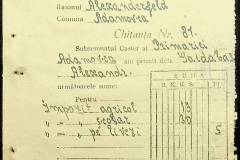 Raionul Alexanderfeld
Comuna Adamovca
Chitanța Nr. 81.
Subsemnatul Casier al Primăriei
Adamovca am primit dela Saldabaș
Alexandr.
SUMA
R.K.K.S.
următoarele sume:
Pentru
Impozit agricol 13
" " școlar 30
" " pe livezi 5